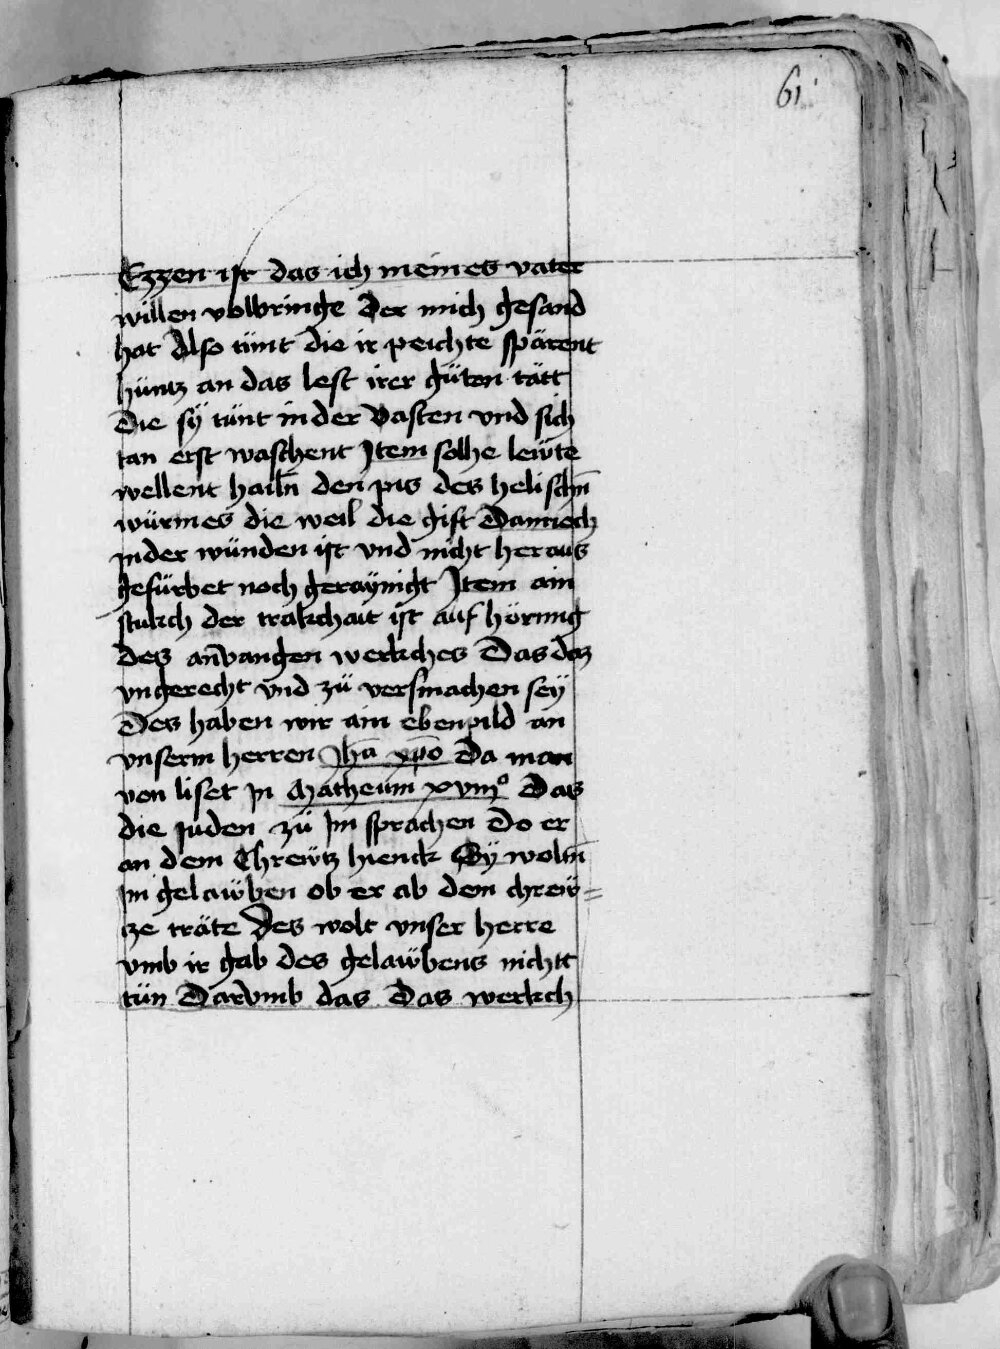 61
Ezzen ist das ich meines vater
willen volbringe Der mich gesand
hat Also tünt die ir peichte spärent
hüntz an das lest irer güten tätt
Die sÿ tünt in der Vasten vnd sich
tan erst waschent Item solhe lewte
wellent hailn̄ den pis des helischn̄
würmes die weil die gift Dannoch
in der wünden ist vnd nicht heraus
gefürbet noch geraÿnigt Item ain
stukch der trakchait ist auf hörung
des an̄vangen werkches Das daz
vngerecht vnd zü versmachen seÿ
Des haben wir ain ebenpild an
vnserm herren Jhū xpō Da man
von liset jn Matheum xxviiº Das
die juden zü jm sprachen Do er
an dem Chrewtz hienck Sÿ woln̄
jm gelawben ob er ab dem chrew=
tze träte Des wolt vnser herre
vmb ir gab des gelawbens nichtt
tün Darvmb das Das werkch